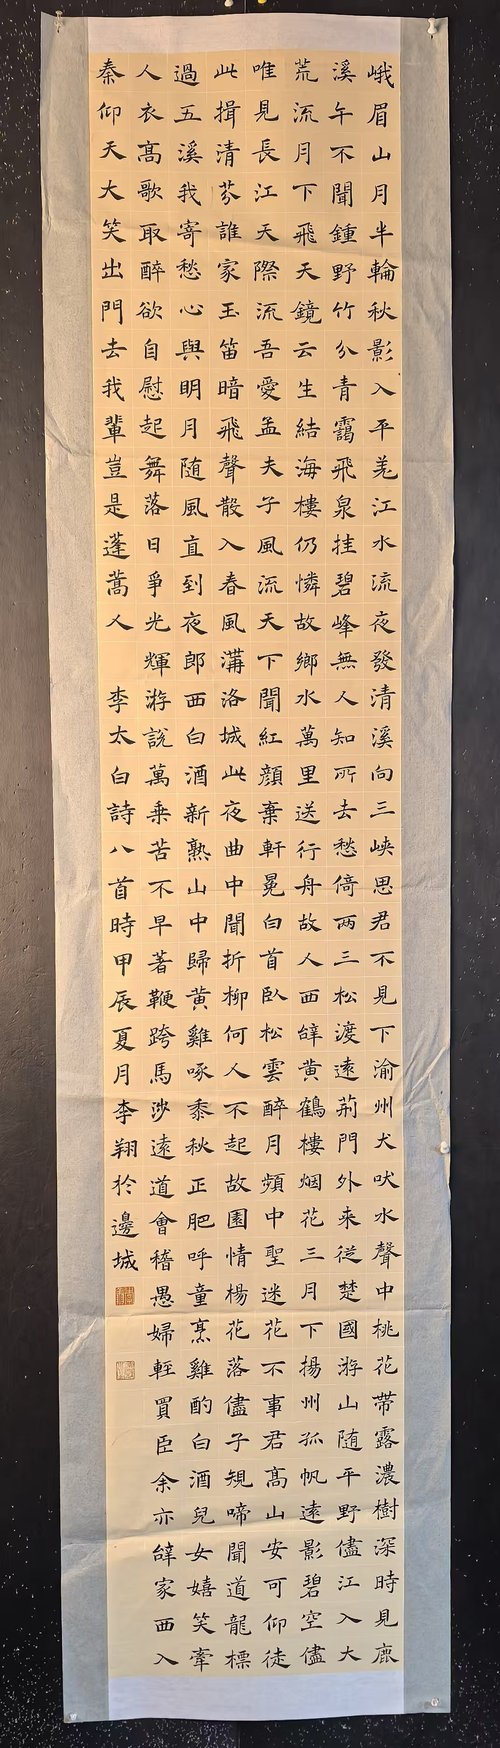 峨眉山月半輪秋影入平羗江水流夜發清溪向三峽思君不見下渝州犬吠水聲中桃花帶露濃樹深時見鹿
溪午不聞鍾野竹分青靄飛泉挂碧峰無人知所去愁倚兩三松渡遠荊門外来從楚國游山随平野儘江入大
荒流月下飛天鏡云生結海樓仍憐故鄉水萬里送行舟故人西辭黃鶴樓烟花三月下揚州孤帆遠影碧空儘
唯見長江天際流吾愛孟夫子風流天下聞紅顏棄軒冕白首臥松雲醉月頻中聖迷花不事君高山安可仰徒
此揖清芬誰家玉笛暗飛聲散入春風滿洛城此夜曲中聞折柳何人不起故園情楊花落儘子規啼聞道龍標
過五溪我寄愁心與明月随風直到夜郎西白酒新熟山中歸黃雞啄黍秋正肥呼童烹雞酌白酒兒女嬉笑牽
人衣高歌取醉欲自慰起舞落日爭光輝游說萬乘苦不早著鞭跨馬涉遠道會稽愚婦輕買臣余亦辭家西入
秦仰天大笑出門去我輩豈是蓬蒿人 李太白詩八首時甲辰夏月李翔於邊城